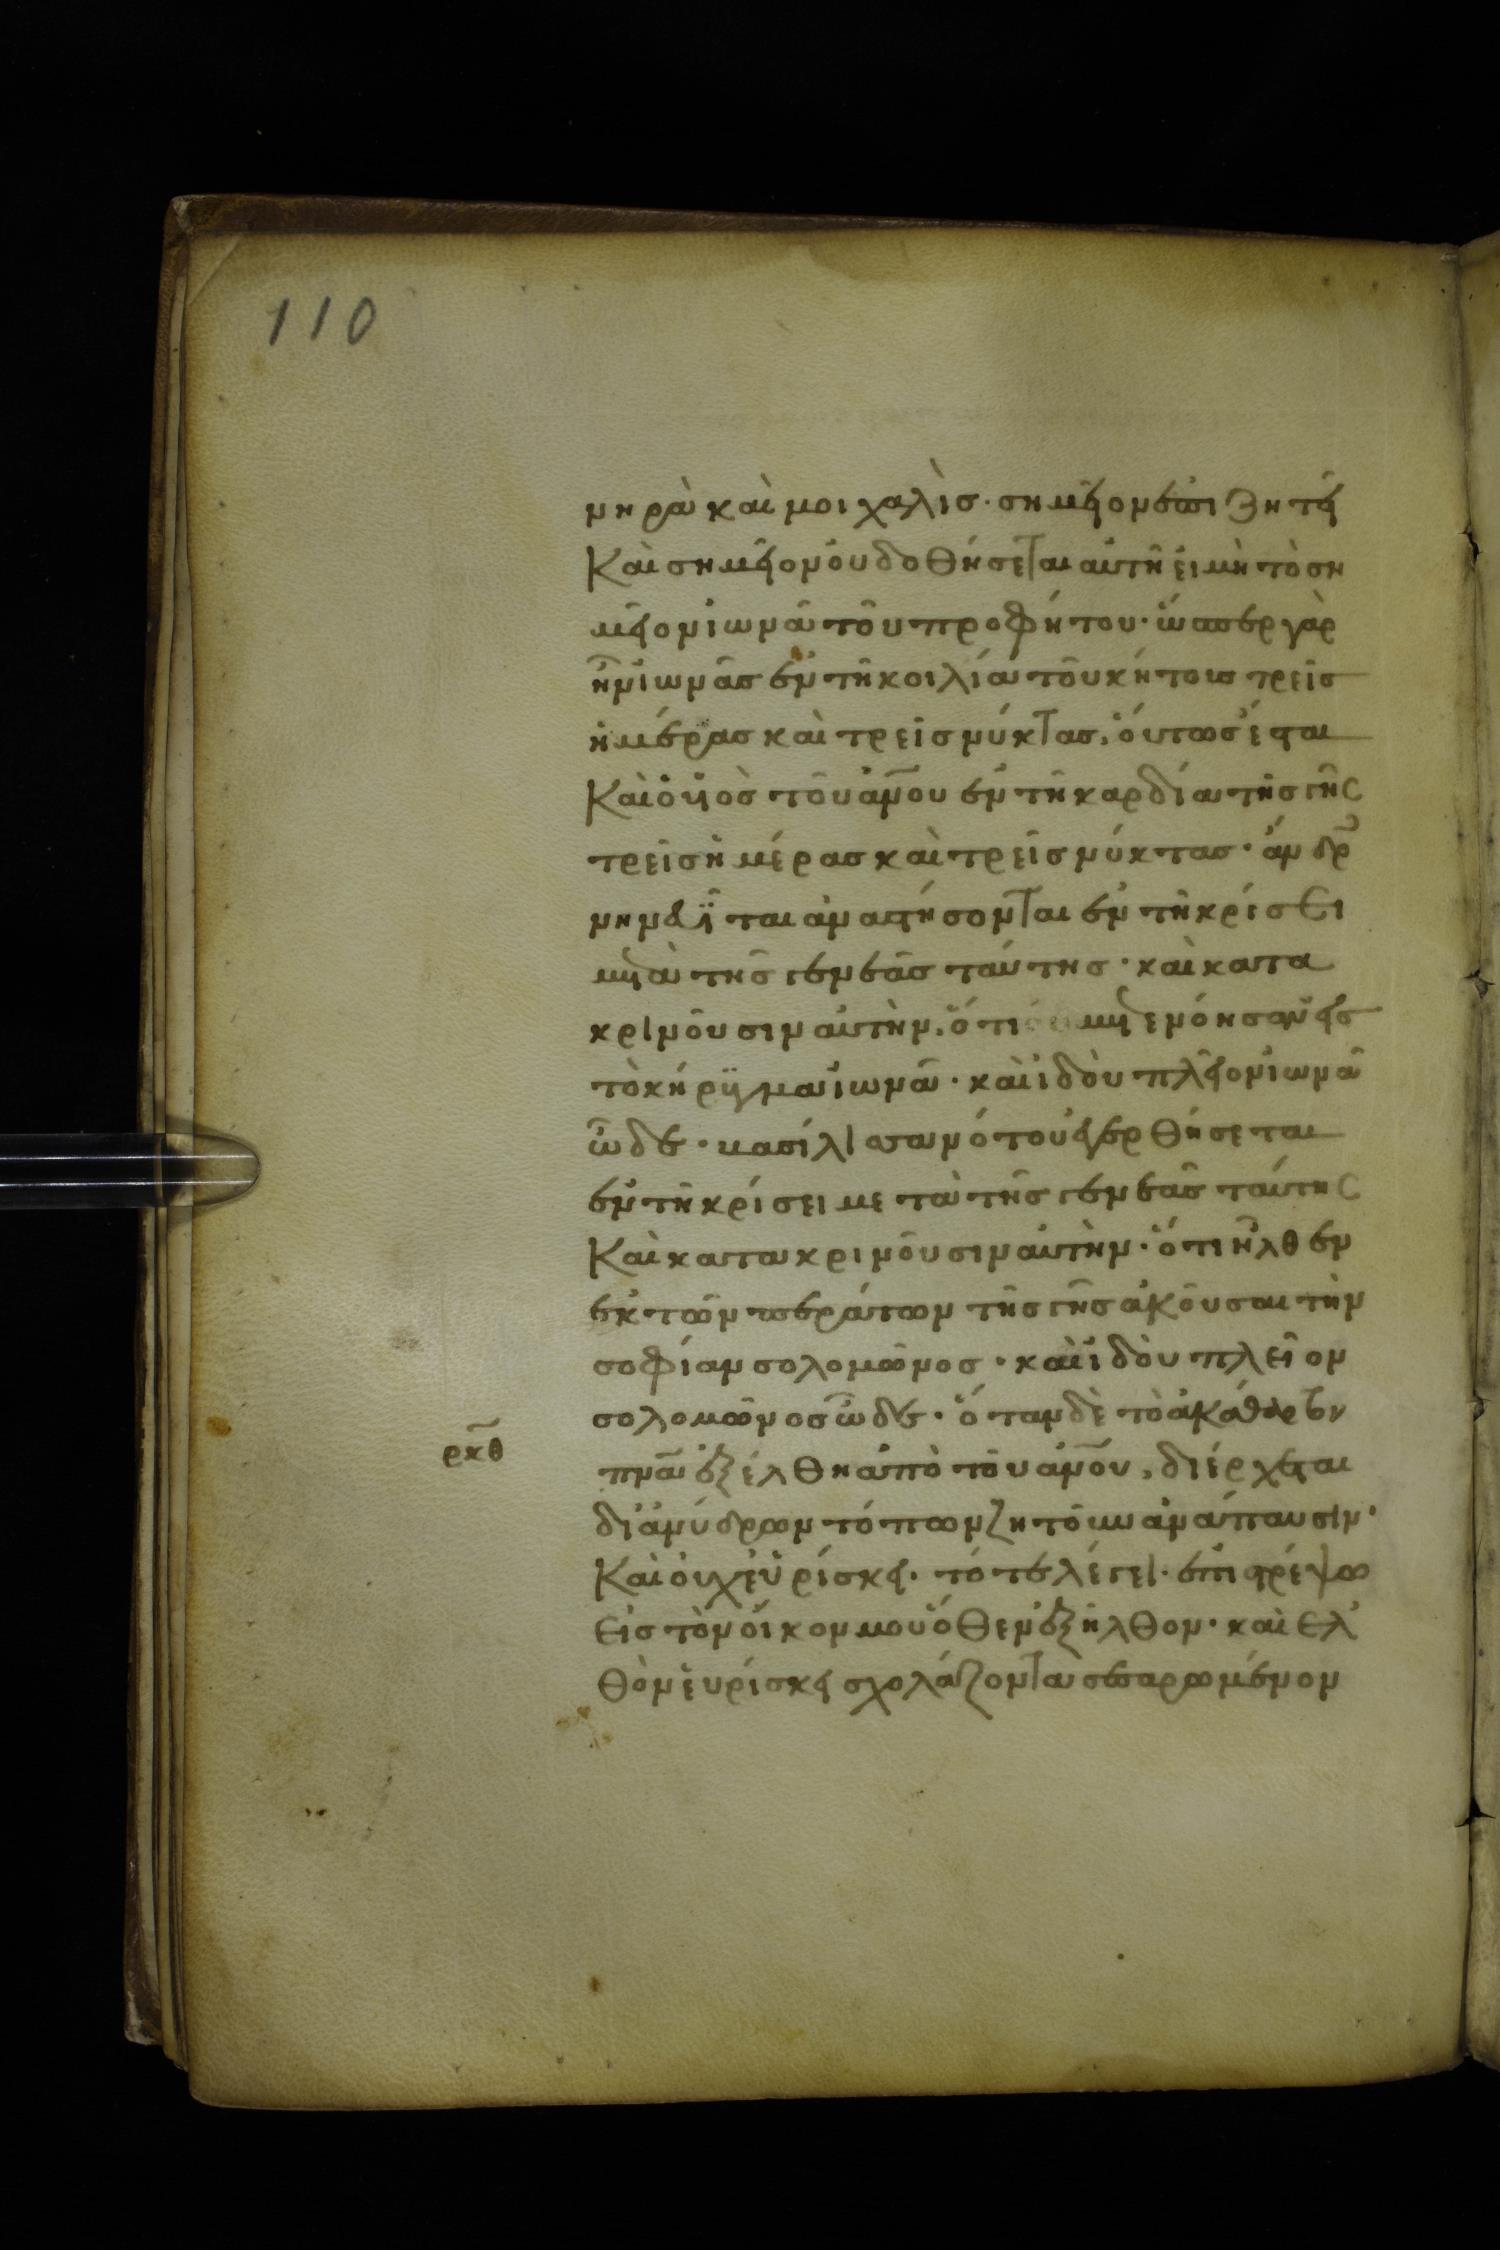 110
νηρὰ καὶ μοιχαλὶσ· σημεῖον ἐπιζητεῖ
Καὶ σημεῖον ὀυ δοθήσεται αὐτῆ εἰ μὴ τὸ ση
μεῖον ἰωνᾶ τοῦ προφήτου· ὥσπερ γὰρ
ἦν ἰωνᾶσ ἐν τῆ κοιλία τοῦ κήτουσ τρεῖσ
ἡμέρασ καὶ τρεῖσ νύκτασ, ὅυτωσ ἔσται
Καὶ ὁ υἱὸσ τοῦ ἀνου ἐν τῆ καρδία τῆσ γῆσ
τρεῖσ ἡμέρασ καὶ τρεῖσ νύκτασ· ἄνδρ
νηνευῖται ἀναστήσονται ἐν τῆ κρίσει
μετὰ τῆσ γενεᾶσ ταύτησ· καὶ κατα
κρινοῦσιν αὐτὴν, ὅτι μετενόησαν εἰσ
τὸ κήρυγμα ἰωνᾶ· καὶ ἰδοὺ πλεῖον ἰωνᾶ
ὧδε· βασίλισσα νότου ἐγερθήσεται
ἐν τῆ κρίσει μετὰ τῆσ γενεᾶσ ταύτησ
Καὶ κατακρινοῦσιν αὐτὴν· ὅτι ἦλθεν
ἐκ τῶν περάτων τῆσ γῆσ ἀκοῦσαι τὴν
σοφίαν σολομῶνοσ· καὶ ἰδοὺ πλεῖον
σολομῶνοσ ὧδε· ὅταν δὲ τὸ ἀκάθαρτον
ρκθ
πνᾶ ἐξέλθη ἀπὸ τοῦ ἀνου, διέρχεται
δι ἀνύδρων τόπων ζητοῦν ἀνάπαυσιν·
Καὶ οὐχ εὑρίσκει· τότε λέγει· ἐπιστρέψω
εἰσ τὸν οἶκον μου ὅθεν ἐξῆλθον· καὶ ἐλ
θὸν εὑρίσκει σχολάζοντα σεσαρωμένον